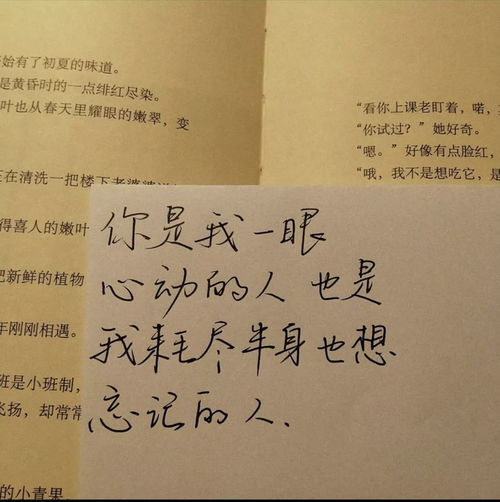 开始有了初夏的味道。
是黄昏时的一点绯红尽染。
叶也从春天里耀眼的嫩翠，变
在清洗一把楼下老婆婆送
得喜人的嫩叶
把新鲜的植物
年刚刚相遇。
班是小班制，
飞扬，却常常
的小青果
“看你上课老盯着，喏，
“你试过？”她好奇。
“嗯。”好像有点脸红，
“哦，我不是想吃它，是
你是我一眼
心动的人 也是
我耗尽半身也想
忘记的人.